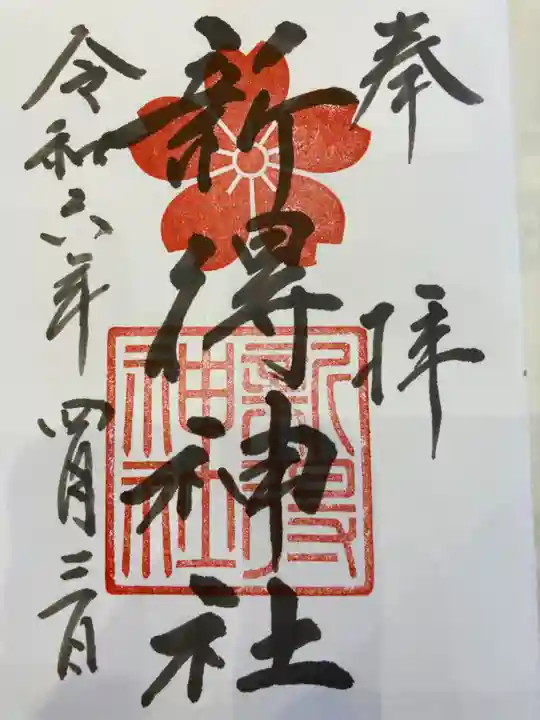 奉拝
新得神社
新得
神社
令和六年四月三日